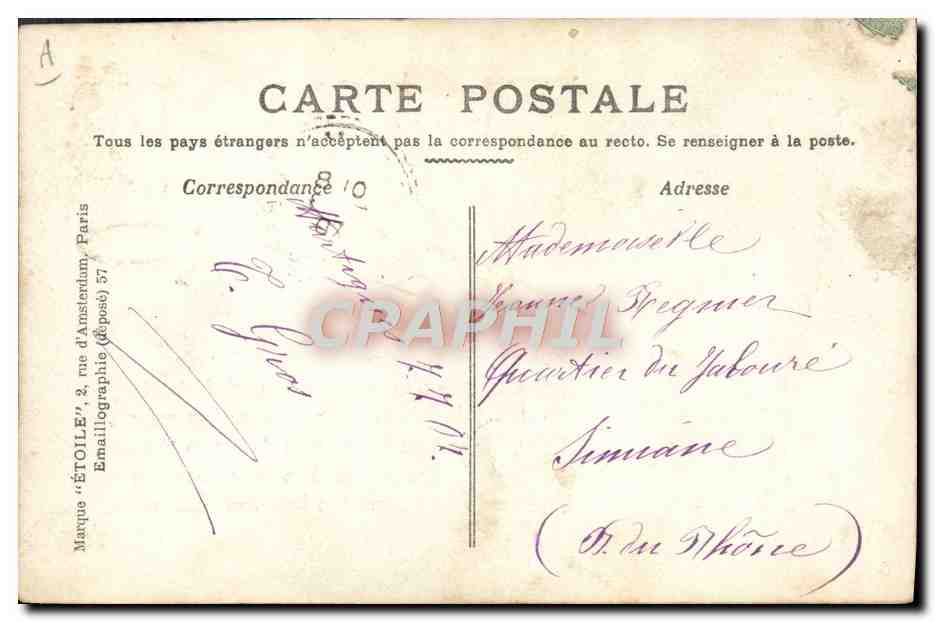 A
CARTE POSTALE
Tous les pays étrangers n'acceptent pas la correspondance au recto. Se renseigner à la poste.
Correspondance
Adresse
Marque "ÉTOILE", 2, rue d'Amsterdam, Paris
Emaillographie (déposé) 57
8 10
Gros
Mademoiselle
Jeanne Regnier
Quartier du
Simiane
(B. du Rhône)
CPAPHIL